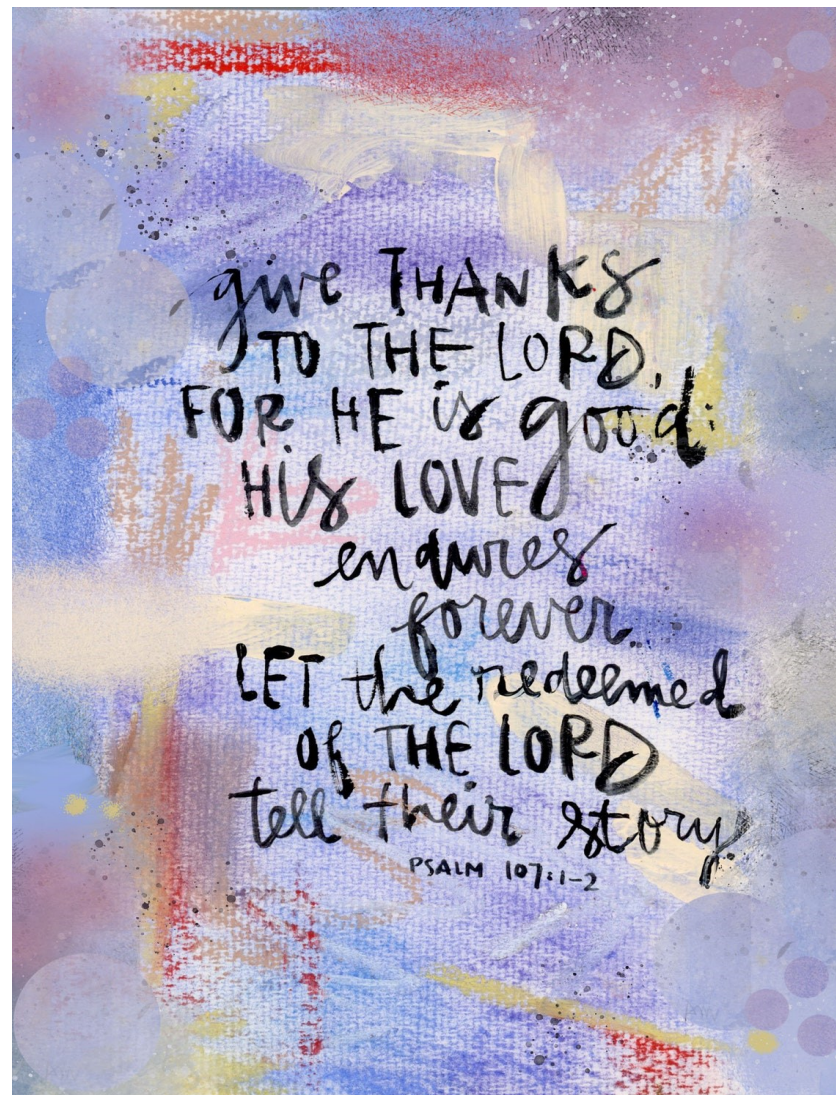 give THANKS
TO THE LORD,
FOR HE is good:
His LOVE
endures
forever.
LET the redeemed
Of THE LORD
tell their story
PSALM 107:1-2